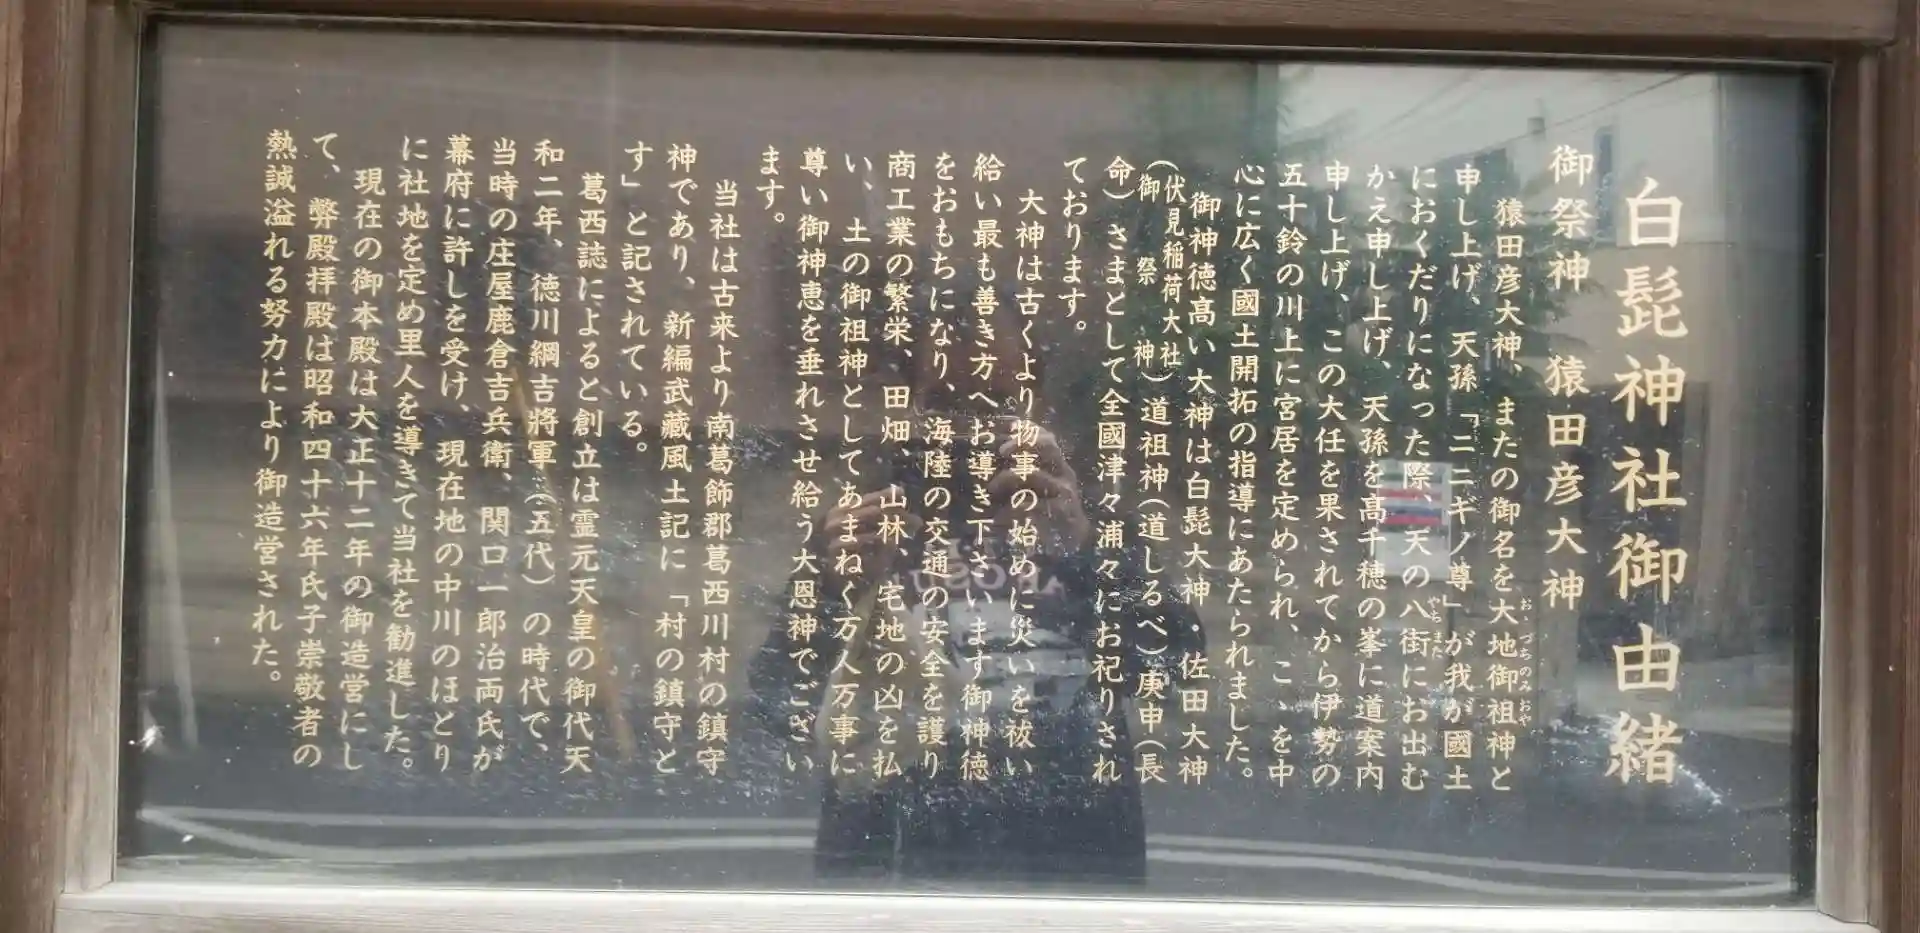 白髭神社御由緒
御祭神　猿田彦大神
猿田彦大神、またの御名を大地御祖神と
おゝづちのみおや
申し上げ、天孫「ニニギノ尊」が我が國土
におくだりになった際、天の八街にお出む
やちまた
かえ申し上げ、天孫を髙千穂の峯に道案内
申し上げ、この大任を果されてから伊勢の
五十鈴の川上に宮居を定められ、こゝを中
心に広く國土開拓の指導にあたられました。
御神徳髙い大神は白髭大神・佐田大神
（伏見稲荷大社
御祭神）道祖神（道しるべ）庚申（長
命）さまとして全國津々浦々にお祀りされ
ております。
大神は古くより物事の始めに災いを祓い
給い最も善き方へお導き下さいます御神徳
をおもちになり、海陸の交通の安全を護り
商工業の繁栄、田畑、山林、宅地の凶を払
い、土の御祖神としてあまねく万人万事に
尊い御神恵を垂れさせ給う大恩神でござい
ます。
当社は古来より南葛飾郡葛西川村の鎮守
神であり、新編武蔵風土記に「村の鎮守と
す」と記されている。
葛西誌によると創立は霊元天皇の御代天
和二年、徳川綱吉將軍（五代）の時代で、
当時の庄屋鹿倉吉兵衛、関口一郎治両氏が
幕府に許しを受け、現在地の中川のほとり
に社地を定め里人を導きて当社を勧進した。
現在の御本殿は大正十二年の御造営にし
て、弊殿拝殿は昭和四十六年氏子崇敬者の
熱誠溢れる努力により御造営された。